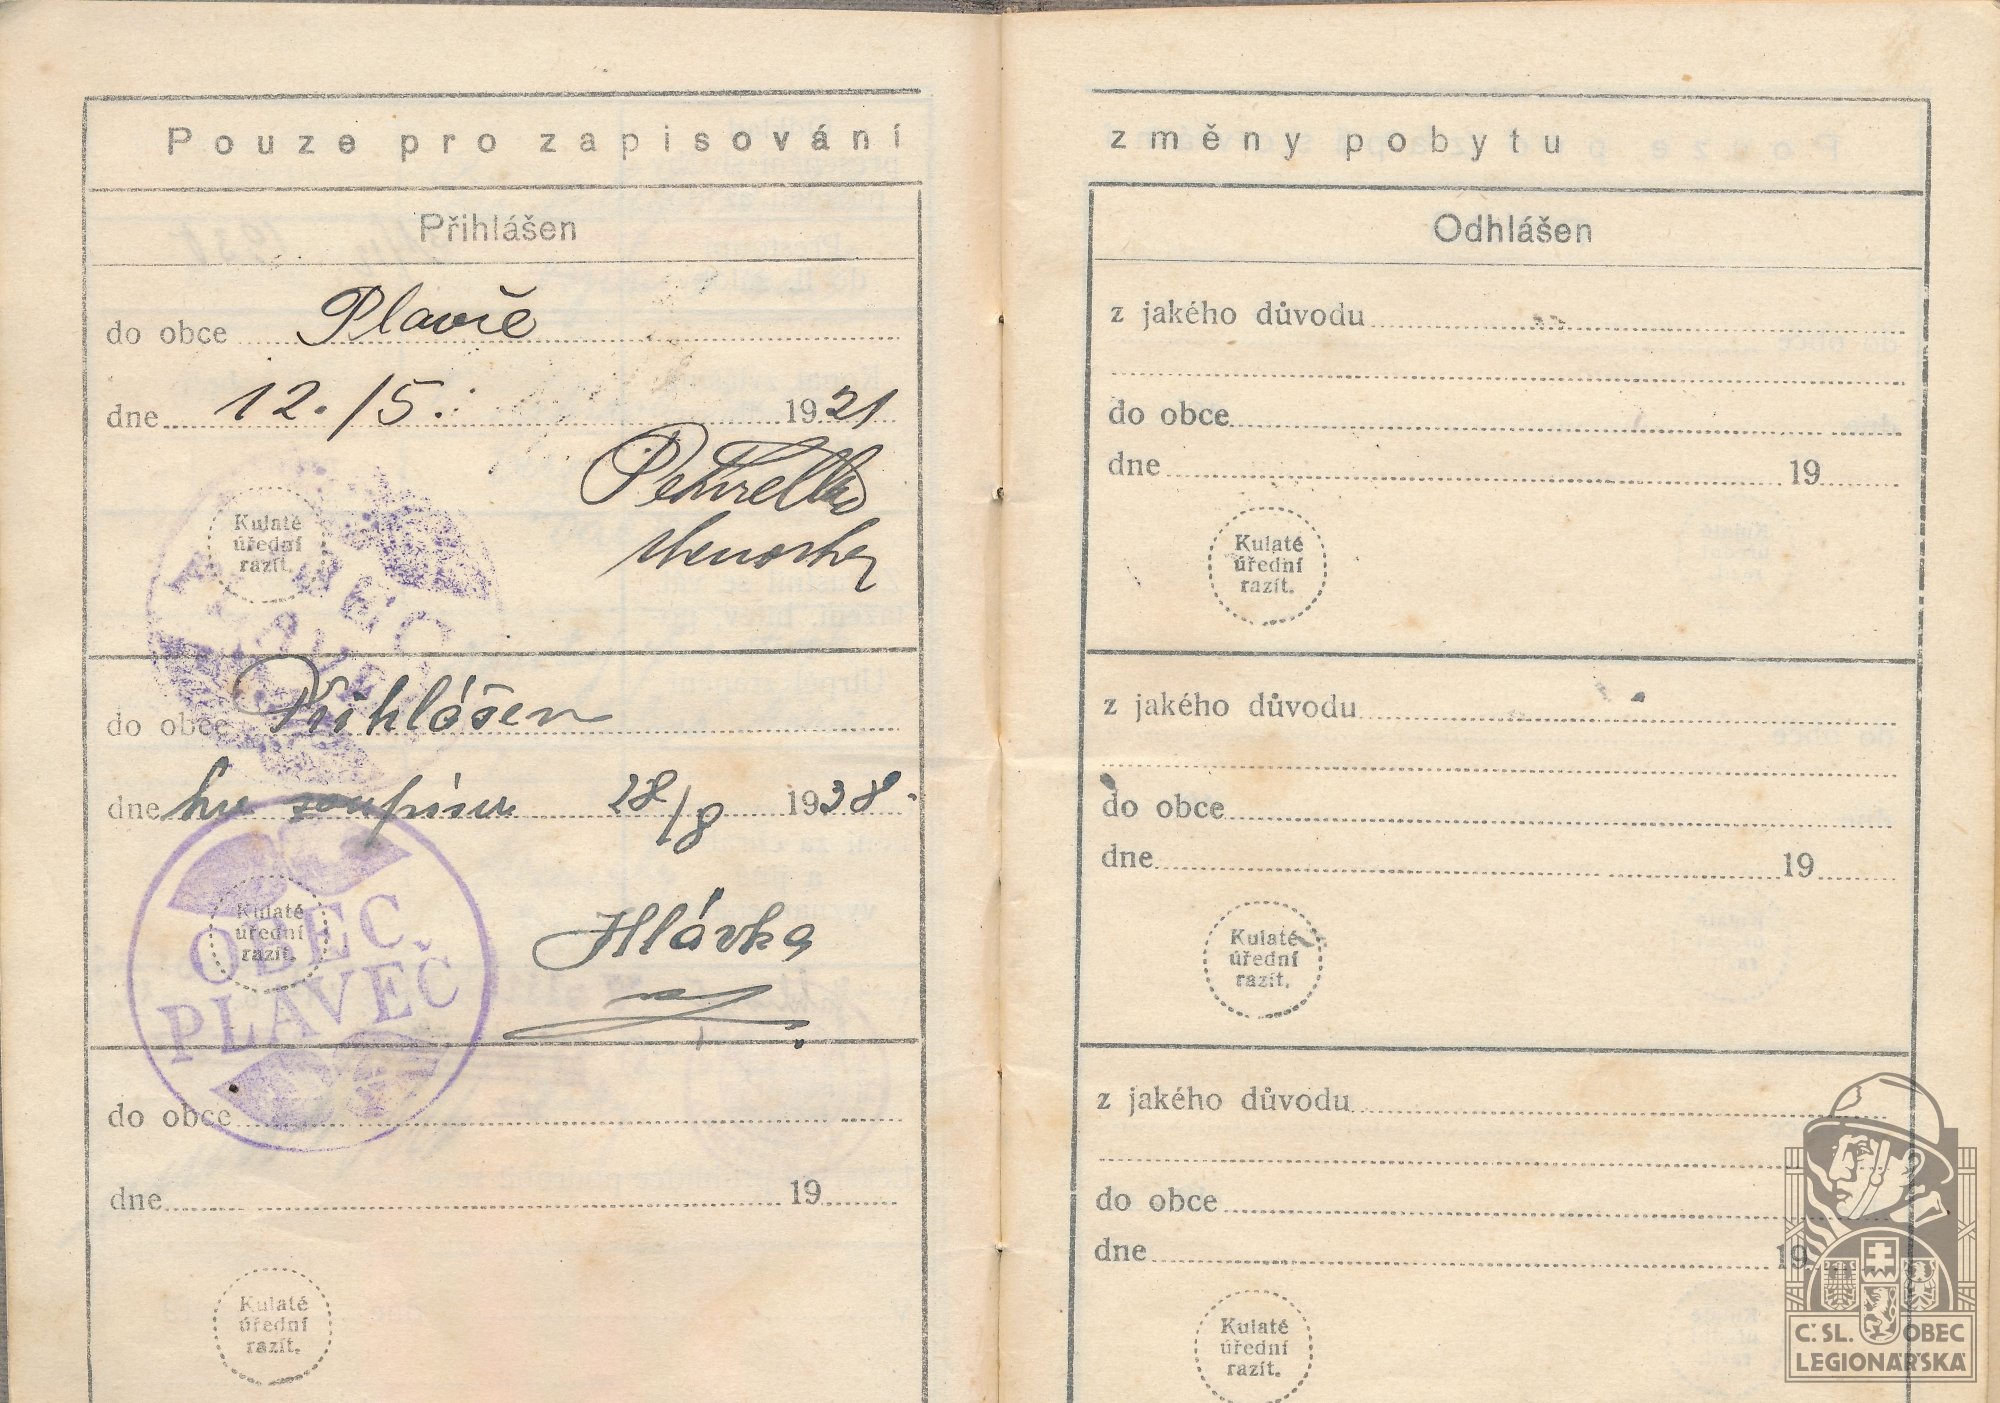 Pouze pro zapisování
Přihlášen
do obce Plavče
dne 12./5. 1921
Kulaté
úřední
razít.
OBEC
do obce Přihlášen
dne ku soupisu 28/8 1938.
Kulaté
úřední
razít.
OBEC
PLAVEČ
Hlávka
do obce
dne 19
Kulaté
úřední
razít.
změny pobytu
Odhlášen
z jakého důvodu
do obce
dne 19
Kulaté
úřední
razít.
z jakého důvodu
do obce
dne 19
Kulaté
úřední
razít.
z jakého důvodu
do obce
dne 19
Kulaté
úřední
razít.
Č. SL. OBEC
LEGIONÁŘSKÁ